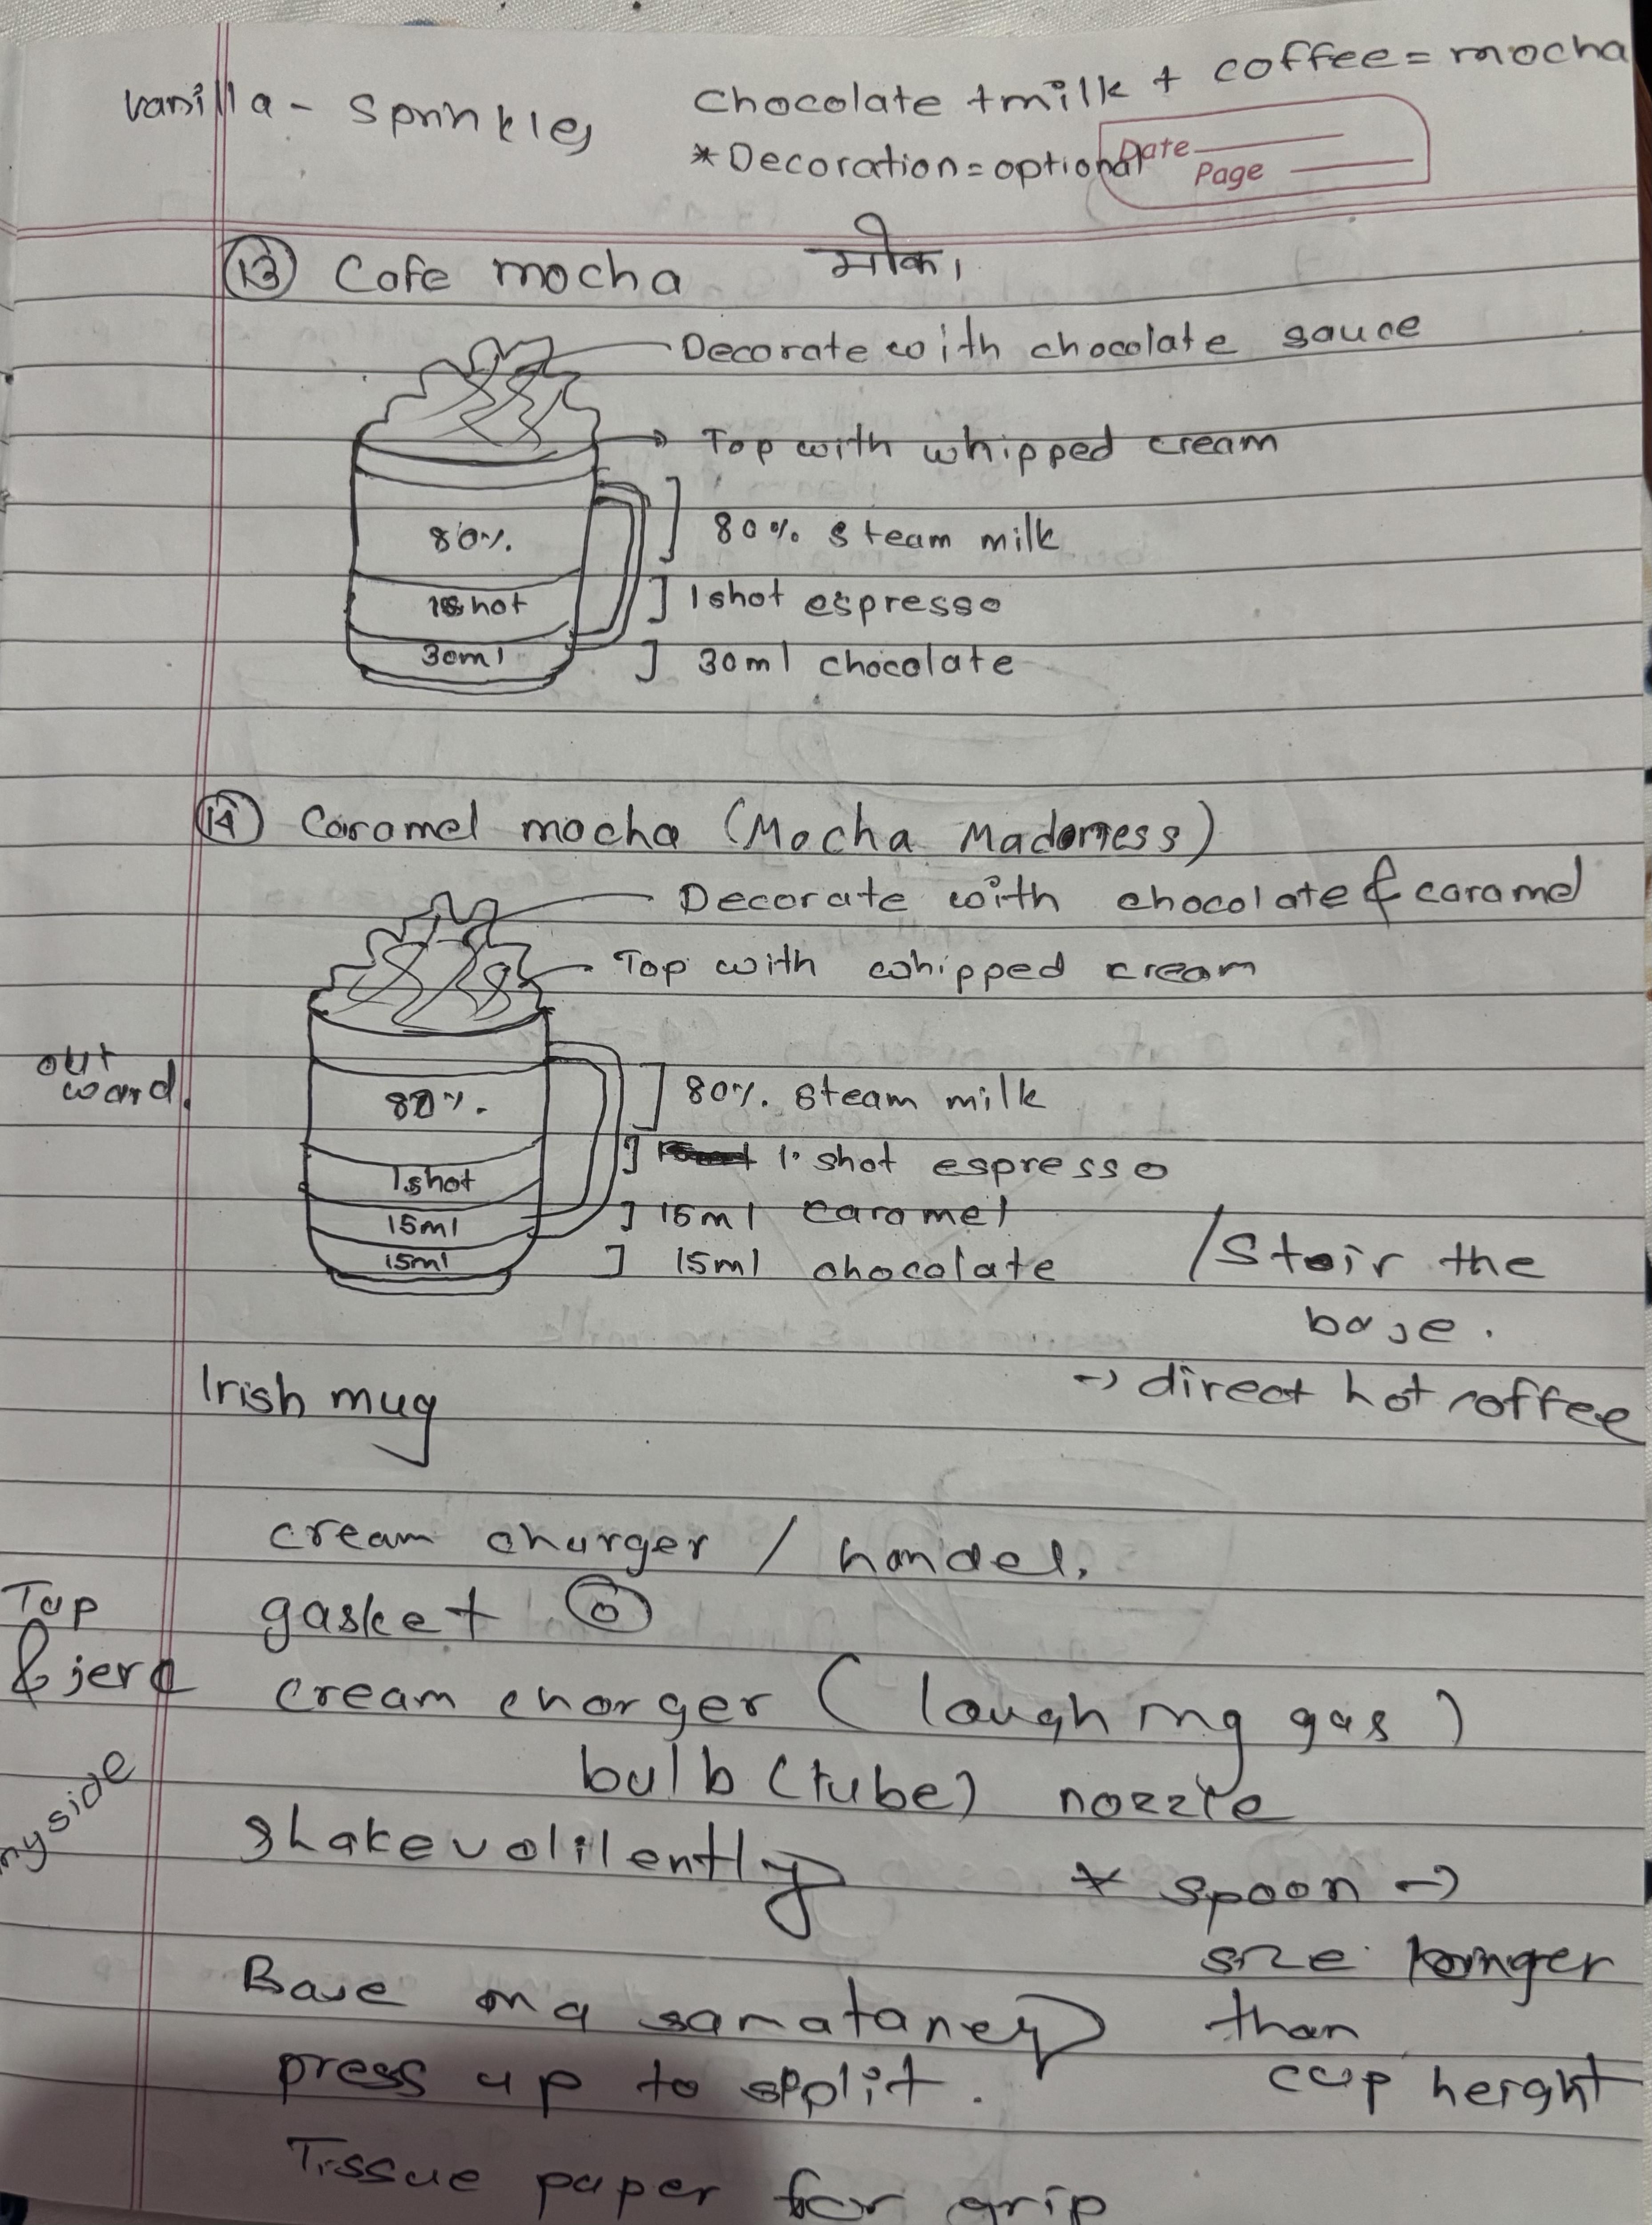 vanilla - Sprinkles
chocolate + milk + coffee = mocha
* Decoration = optional
Date
Page
13 Cafe mocha मोका
Decorate with chocolate sauce
Top with whipped cream
80% 80% steam milk
1shot 1shot espresso
30ml 30ml chocolate
14 Caramel mocha (Mocha Madness)
Decorate with chocolate & caramel
Top with whipped cream
out
ward.
80% 80% steam milk
1shot 1 shot espresso
15ml 15ml caramel
15ml 15ml chocolate
/ Stair the
base.
Irish mug
→ direct hot coffee
cream charger / handel.
Tap
& jerc
gasket
cream charger (laughing gas)
bulb (tube) nozzle
my side
shake volilently
* spoon →
size longer
than
cup height
Base in a
press up to split.
Tissue paper for grip